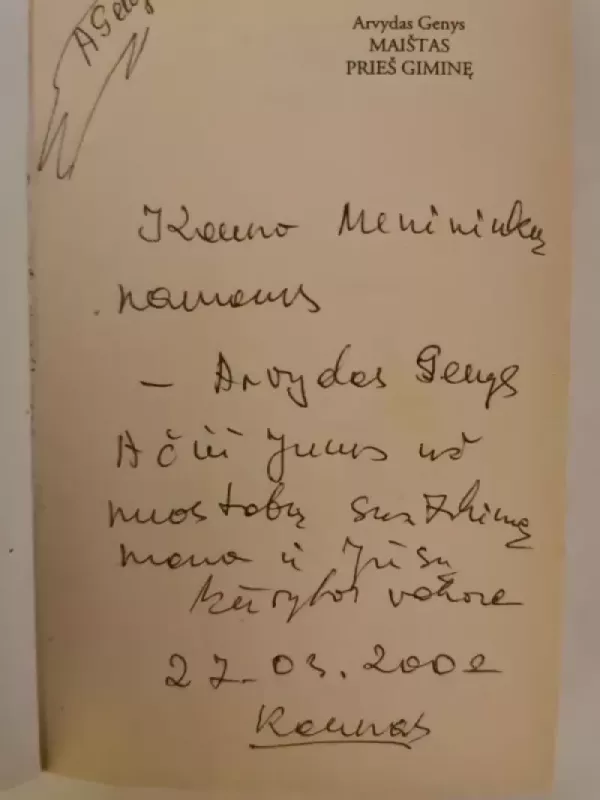 A Geny
Arvydas Genys
MAIŠTAS
PRIEŠ GIMINĘ
Kauno Menininkų
namams
– Arvydas Genys
Ačiū Jums už
nuostabų sutikimą
mano ir Jūsų
kūrybos vakare
27.03.2002
Kaunas